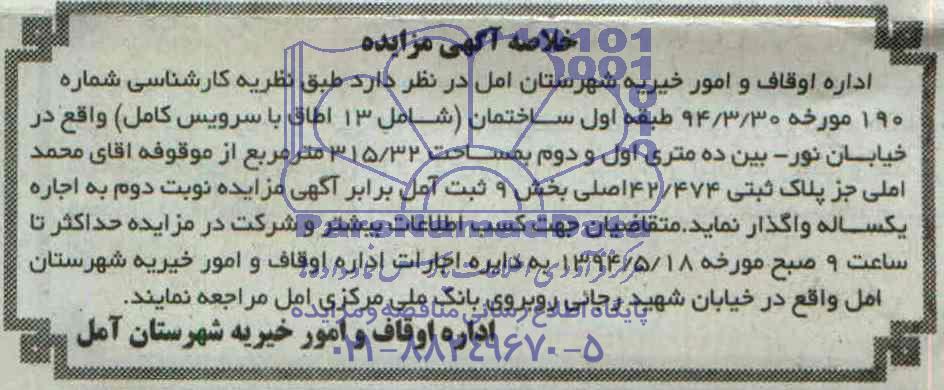 خلاصه آگهی مزایده
اداره اوقاف و امور خیریه شهرستان امل در نظر دارد طبق نظریه کارشناسی شماره
۱۹۰ مورخه ۹۴/۳/۳۰ طبقه اول ساختمان (شامل ۱۳ اطاق با سرویس کامل) واقع در
خیابان نور- بین ده متری اول و دوم بمساحت ۳۱۵/۳۲ مترمربع از موقوفه اقای محمد
املی جز پلاک ثبتی ۴۲/۴۷۴اصلی بخش ۹ ثبت آمل برابر آگهی مزایده نوبت دوم به اجاره
یکساله واگذار نماید.متقاضیان جهت کسب اطلاعات بیشتر و شرکت در مزایده حداکثر تا
ساعت ۹ صبح مورخه ۱۳۹۴/۵/۱۸ به دایره اجارات اداره اوقاف و امور خیریه شهرستان
امل واقع در خیابان شهید رجائی روبروی بانک ملی مرکزی امل مراجعه نمایند.
پایگاه اطلاع رسانی مناقصه و مزایده
اداره اوقاف و امور خیریه شهرستان آمل
۰۲۱-۸۸۳۴۹۶۷۰-۵